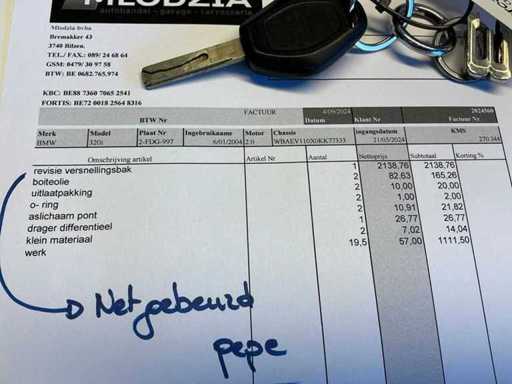 MŁODZIA
autohandel - garage - carrosserie
Mlodzia bvba
Bremakker 43
3740 Bilzen.
TEL./ FAX.: 089/ 24 68 64
GSM: 0479/ 30 97 58
BTW: BE 0682.765.974
KBC: BE88 7360 7065 2541
FORTIS: BE72 0018 2564 8316
FACTUUR 4/09/2024 2024560
BTW Nr Datum Klant Nr Factuur Nr
Merk Model Plant Nr Ingebruikname Motor Chassis ingangsdatum KMS
BMW 320i 2-FDG-997 6/01/2004 2.0 WBAEV110X0KK77333 21/05/2024 270.344
Omschrijving artikel Artikel Nr Aantal Nettoprijs Subtotaal Korting %
revisie versnellingsbak 1 2138,76 2138,76
boiteolie 2 82,63 165,26
uitlaatpakking 2 10,00 20,00
o- ring 2 1,00 2,00
aslichaam pont 2 10,91 21,82
drager differentieel 1 26,77 26,77
klein materiaal 2 7,02 14,04
werk 19,5 57,00 1111,50
Net gebeurd
pepe